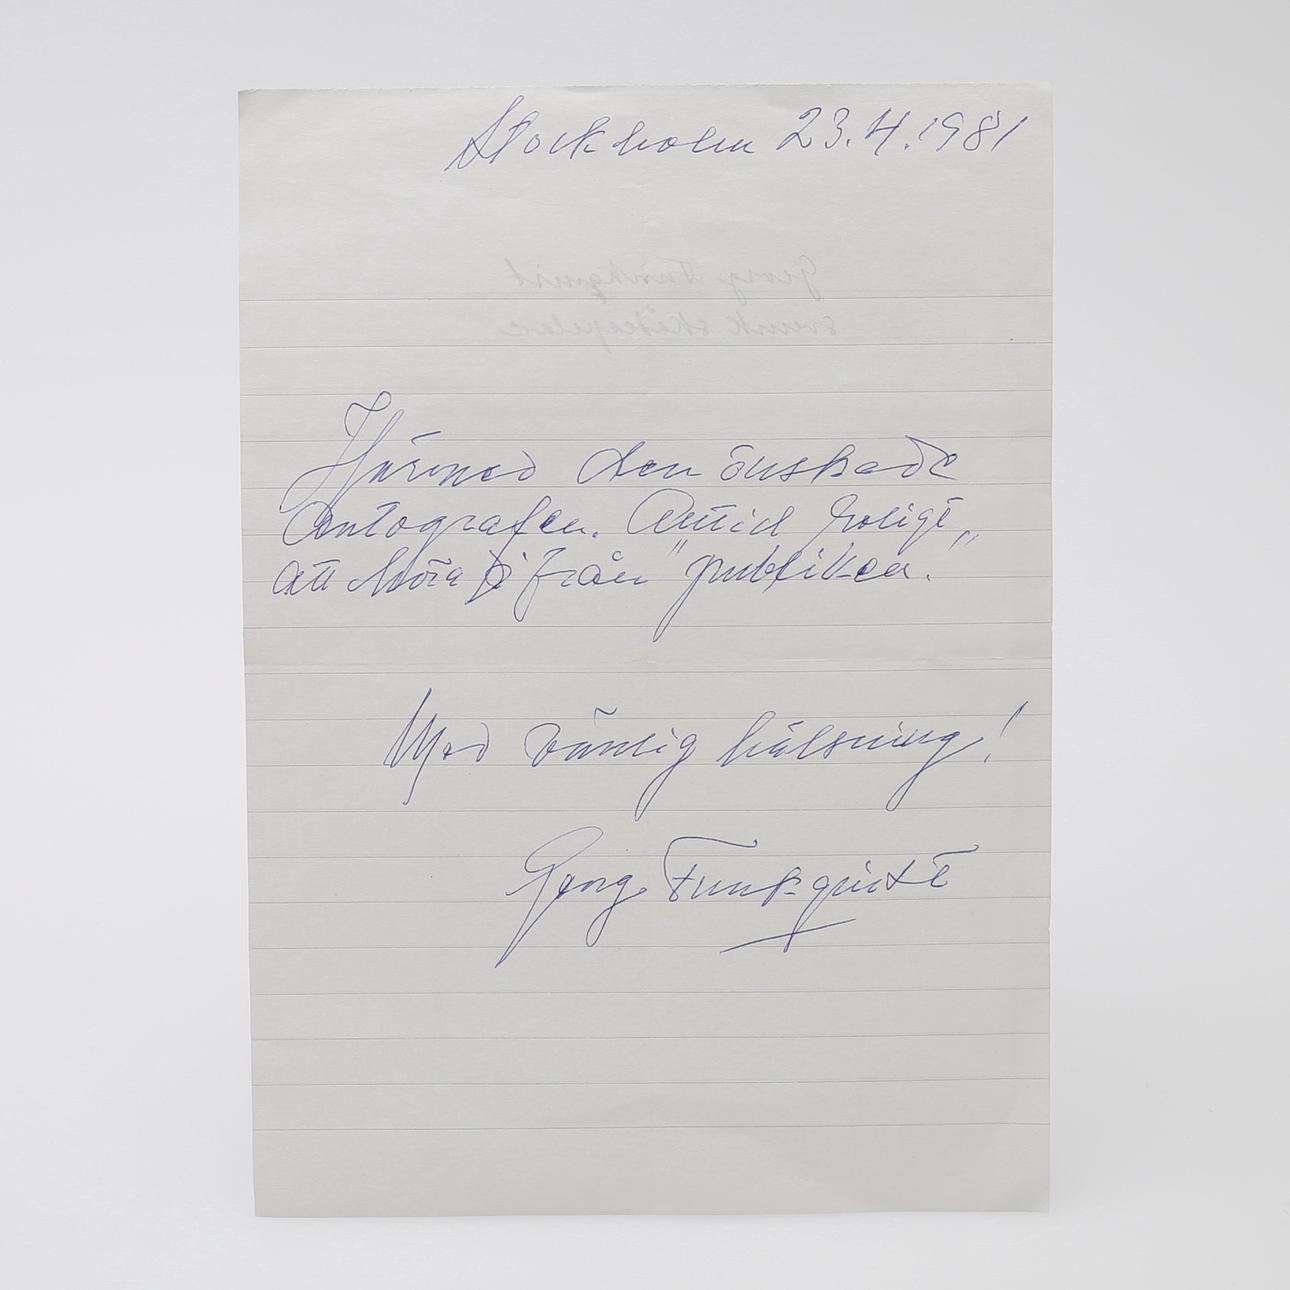 Stockholm 23.4.1981
Georg Funkquist
svensk skådespelare
Härmed den önskade
autografen. Alltid roligt
att höra från "publiken."
Med vänlig hälsning!
Georg Funkquist